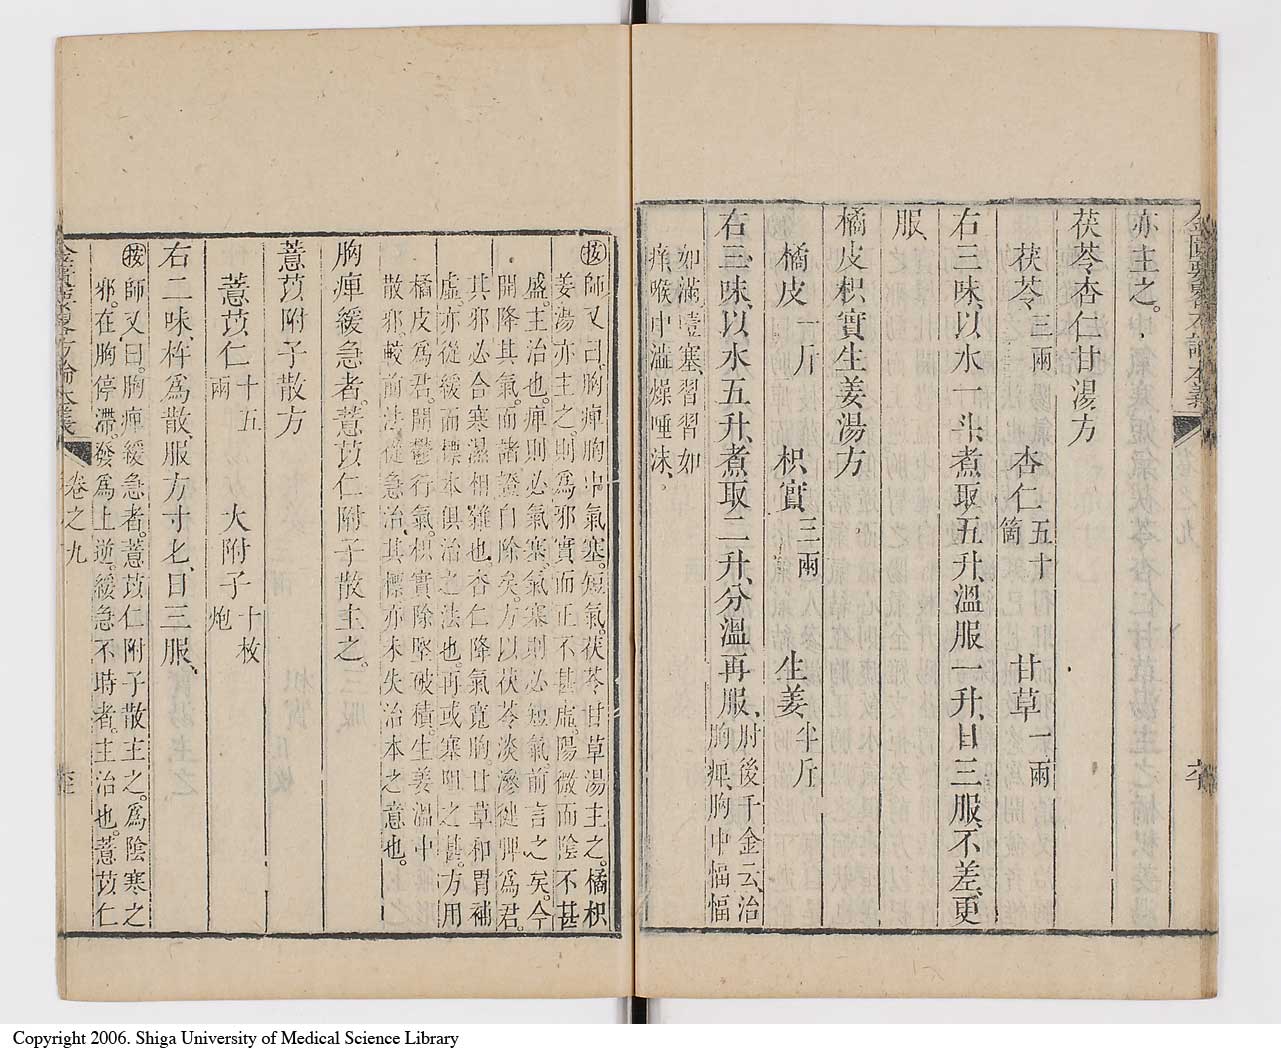 亦主之。
茯苓杏仁甘湯方
茯苓三兩 杏仁五十箇 甘草一兩
右三味、以水一斗、煮取五升、溫服一升、日三服、不差、更
服、
橘皮枳實生姜湯方
橘皮一斤 枳實三兩 生姜半斤
右三味、以水五升、煮取二升、分溫再服、肘後千金云、治
胸痺、胸中愊愊
如滿、噎塞、習習如
痒、喉中澁燥唾沫、
按師又曰、胸痺胸中氣塞。短氣。茯苓甘草湯主之。橘枳
姜湯亦主之。則為邪實而正不甚虛。陽微而陰不甚
盛。主治也。痺則必氣塞。氣塞則必短氣。前言之矣。今
開降其氣。而諸證自除矣。方以茯苓淡滲健脾為君。
其邪必合寒濕相雜也。杏仁降氣寬胸。甘草和胃補
虛。亦從緩而標本俱治之法也。再或寒阻之甚。方用
橘皮為君。開鬱行氣。枳實除堅破積。生姜溫中
散邪。較前法從急治其標。亦未失治本之意也。
胸痺緩急者。薏苡仁附子散主之。
薏苡附子散方
薏苡仁十五兩 大附子十枚炮
右二味、杵為散、服方寸匕、日三服、
按師又曰。胸痺緩急者。薏苡仁附子散主之。為陰寒之
邪。在胸停滯。發為上逆。緩急不時者。主治也。薏苡仁
金匱要畧方論本義 卷之九